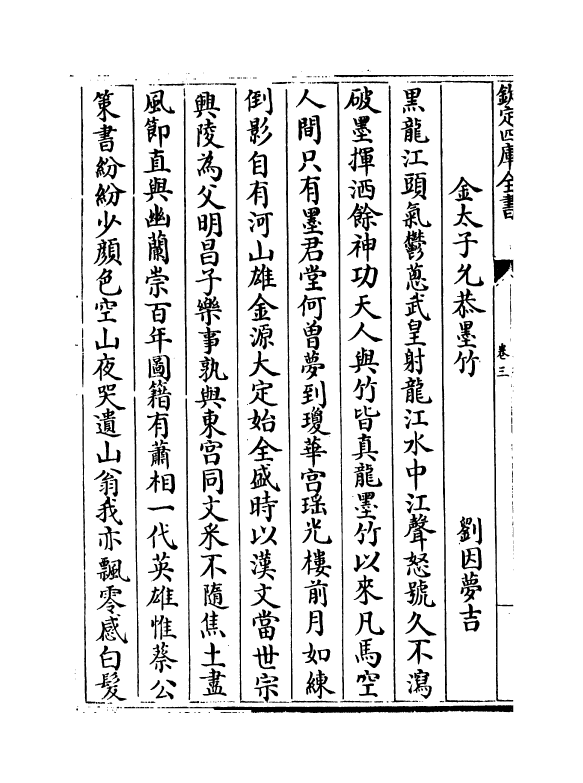 欽定四庫全書
卷三
金太子允恭墨竹　劉因夢吉
黑龍江頭氣鬱蔥武皇射龍江水中江聲怒號久不瀉
破墨揮洒餘神功天人與竹皆真龍墨竹以來凡馬空
人間只有墨君堂何曾夢到瓊華宫瑶光樓前月如練
倒影自有河山雄金源大定始全盛時以漢文當世宗
興陵為父明昌子樂事孰與東宫同文采不隨焦土盡
風節直與幽蘭崇百年圖籍有蕭相一代英雄惟蔡公
策書紛紛少顔色空山夜哭遺山翁我亦飄零感白髪